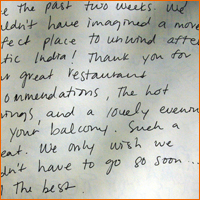 e the past two weeks. We
uldn't have imagined a more
fect place to unwind after
tic India! Thank you for
ur great restaurant
ommendations, the hot
ings, and a lovely evening
your balcony. Such a
eat. We only wish we
dn't have to go so soon ...
The best.